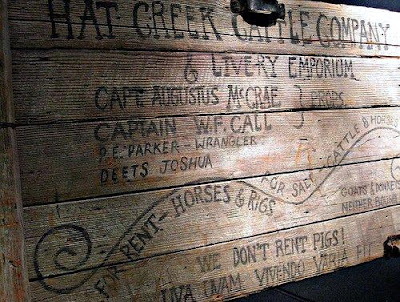 HAT CREEK CATTLE COMPANY
& LIVERY EMPORIUM
CAPT AUGUSTUS McCRAE } PROPS.
CAPTAIN W.F. CALL
P.E. PARKER - WRANGLER
DEETS JOSHUA
FOR RENT - HORSES & RIGS
FOR SALE - CATTLE & HORSES
GOATS
NEITHER
WE DON'T RENT PIGS!
UVA UVAM VIVENDO VARIA